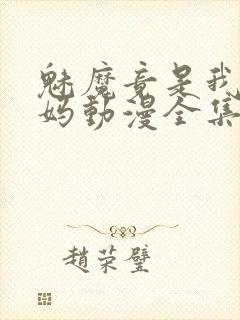 魅魔竟是我
妈动漫全集
趙荣璧